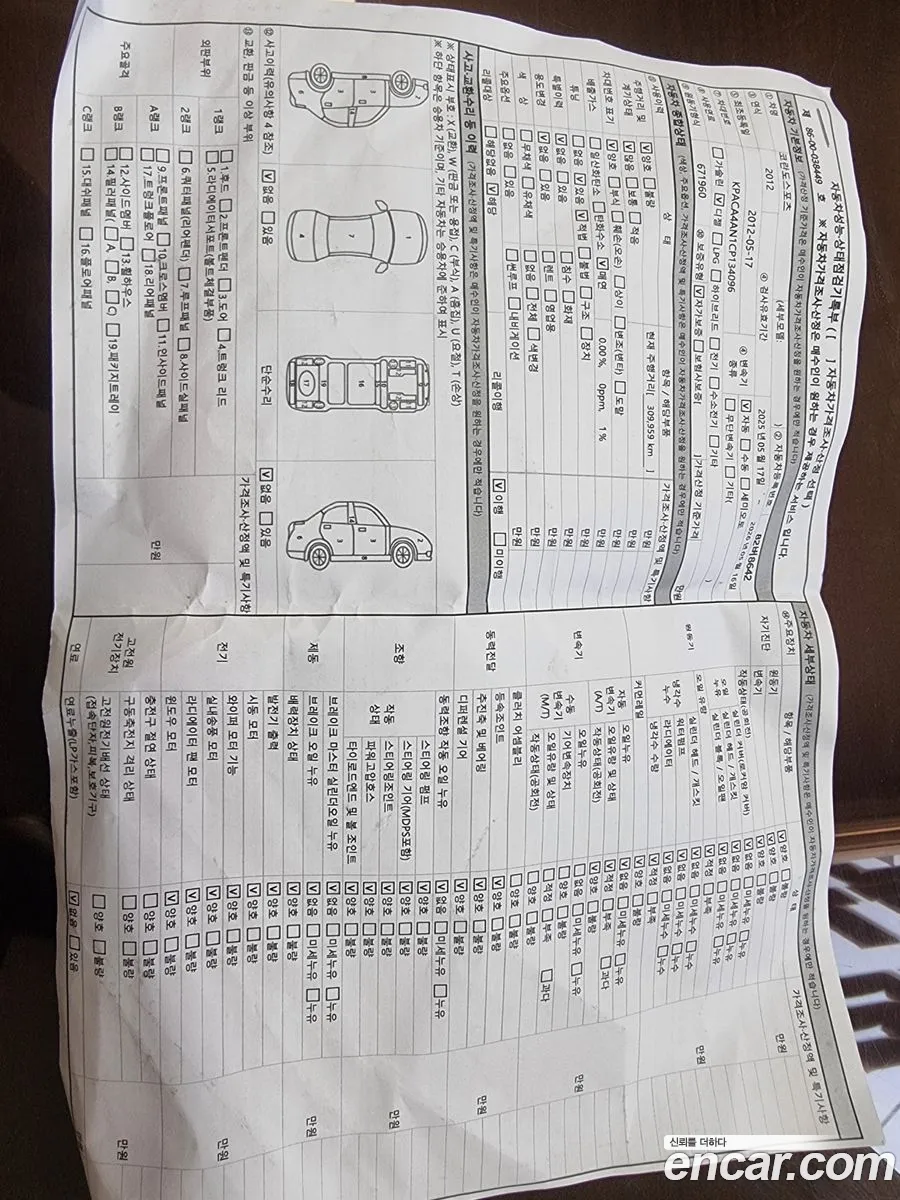 제 86-00-038449 호 ※ 자동차가격조사·산정은 매수인이 원하는 경우 제공하는 서비스 입니다.
자동차성능·상태점검기록부 ( [ ] 자동차가격조사·산정 선택 )
자동차 기본정보 (가격산정 기준가격은 매수인이 자동차가격조사·산정을 원하는 경우에만 적습니다)
① 차명 코란도스포츠 (세부모델: ) ② 자동차등록번호
③ 연식 2012 ④ 검사유효기간 2025 년 05 월 17일 ~
⑤ 최초등록일 2012-05-17
⑥ 차대번호 KPACA4AN1CP134096
변속기 종류 V 자동 수동 세미오토 무단변속기 기타( )
사용연료 가솔린 V 디젤 LPG 하이브리드 전기 수소전기 기타
원동기형식 671960 ⑩ 보증유형 V 자가보증 보험사보증 [ ] 가격산정 기준가격 만원
자동차 종합상태 (색상, 주요옵션, 가격조사·산정액 및 특기사항은 매수인이 자동차가격조사·산정을 원하는 경우에만 적습니다)
⑪ 사용이력 상 태 항목 / 해당부품 가격조사·산정액 및 특기사항
주행거리 및 계기상태 V 양호 불량 현재 주행거리[ 309,959 km ] 만원
V 많음 보통 적음 만원
차대번호 표기 V 양호 부식 훼손(오손) 상이 변조(변타) 도말 만원
배출가스 일산화탄소 탄화수소 V 매연 0.00%, 0ppm, 1% 만원
튜닝 없음 V 있음 V 적법 불법 구조 장치 만원
특별이력 V 없음 있음 침수 화재 만원
용도변경 V 없음 있음 렌트 영업용 만원
색상 무채색 유채색 없음 전체 색변경 만원
주요옵션 없음 있음 썬루프 내비게이션 만원
리콜대상 해당없음 V 해당 리콜이행 V 이행 미이행
사고·교환·수리 등 이력 (가격조사·산정액 및 특기사항은 매수인이 자동차가격조사·산정을 원하는 경우에만 적습니다)
※ 상태표시 부호 : X (교환), W (판금 또는 용접), C (부식), A (흠집), U (요철), T (손상)
※ 하단 항목은 승용차 기준이며, 기타 자동차는 승용차에 준하여 표시
⑫ 사고이력(유의사항 4 참조) V 없음 있음 단순수리 V 없음 있음
⑬ 교환, 판금 등 이상 부위 가격조사·산정액 및 특기사항
외판부위 1랭크 1.후드 2.프론트펜더 3.도어 4.트렁크 리드
5.라디에이터서포트(볼트체결부품)
2랭크 6.쿼터패널(리어펜더) 7.루프패널 8.사이드실패널
주요골격 A랭크 9.프론트패널 10.크로스멤버 11.인사이드패널
17.트렁크플로어 18.리어패널
B랭크 12.사이드멤버 13.휠하우스
14.필러패널( A, B, C) 19.패키지트레이
C랭크 15.대쉬패널 16.플로어패널
만원
자동차 세부상태 (가격조사·산정액 및 특기사항은 매수인이 자동차가격조사·산정을 원하는 경우에만 적습니다)
⑭주요장치 항목 / 해당부품 상 태 가격조사·산정액 및 특기사항
자기진단 원동기 V 양호 불량 만원
변속기 V 양호 불량
원동기 작동상태(공회전) V 양호 불량
오일 누유 실린더 커버(로커암 커버) V 없음 미세누유 누유
실린더 헤드 / 개스킷 V 없음 미세누유 누유
실린더 블록 / 오일팬 V 없음 미세누유 누유
오일 유량 V 적정 부족
냉각수 누수 실린더 헤드 / 개스킷 V 없음 미세누수 누수
워터펌프 V 없음 미세누수 누수
라디에이터 V 없음 미세누수 누수
냉각수 수량 V 적정 부족
커먼레일 V 양호 불량
만원
변속기 자동변속기(A/T) 오일누유 V 없음 미세누유 누유
오일유량 및 상태 V 적정 부족 과다
작동상태(공회전) V 양호 불량
수동변속기(M/T) 오일누유 없음 미세누유 누유
기어변속장치 양호 불량
오일유량 및 상태 적정 부족 과다
작동상태(공회전) 양호 불량
만원
동력전달 클러치 어셈블리 양호 불량
등속조인트 V 양호 불량
추진축 및 베어링 V 양호 불량
디피렌셜 기어 V 양호 불량
만원
조향 동력조향 작동 오일 누유 V 없음 미세누유 누유
작동상태 스티어링 펌프 V 양호 불량
스티어링 기어(MDPS포함) V 양호 불량
스티어링조인트 V 양호 불량
파워고압호스 V 양호 불량
타이로드엔드 및 볼 조인트 V 양호 불량
만원
제동 브레이크 마스터 실린더오일 누유 V 없음 미세누유 누유
브레이크 오일 누유 V 없음 미세누유 누유
배력장치 상태 V 양호 불량
만원
전기 발전기 출력 V 양호 불량
시동 모터 V 양호 불량
와이퍼 모터 기능 V 양호 불량
실내송풍 모터 V 양호 불량
라디에이터 팬 모터 V 양호 불량
윈도우 모터 V 양호 불량
만원
고전원 전기장치 충전구 절연 상태 양호 불량
구동축전지 격리 상태 양호 불량
고전원전기배선 상태 (접속단자,피복,보호기구) 양호 불량
만원
연료 연료누출(LP가스포함) V 없음 있음
신뢰를 더하다
encar.com